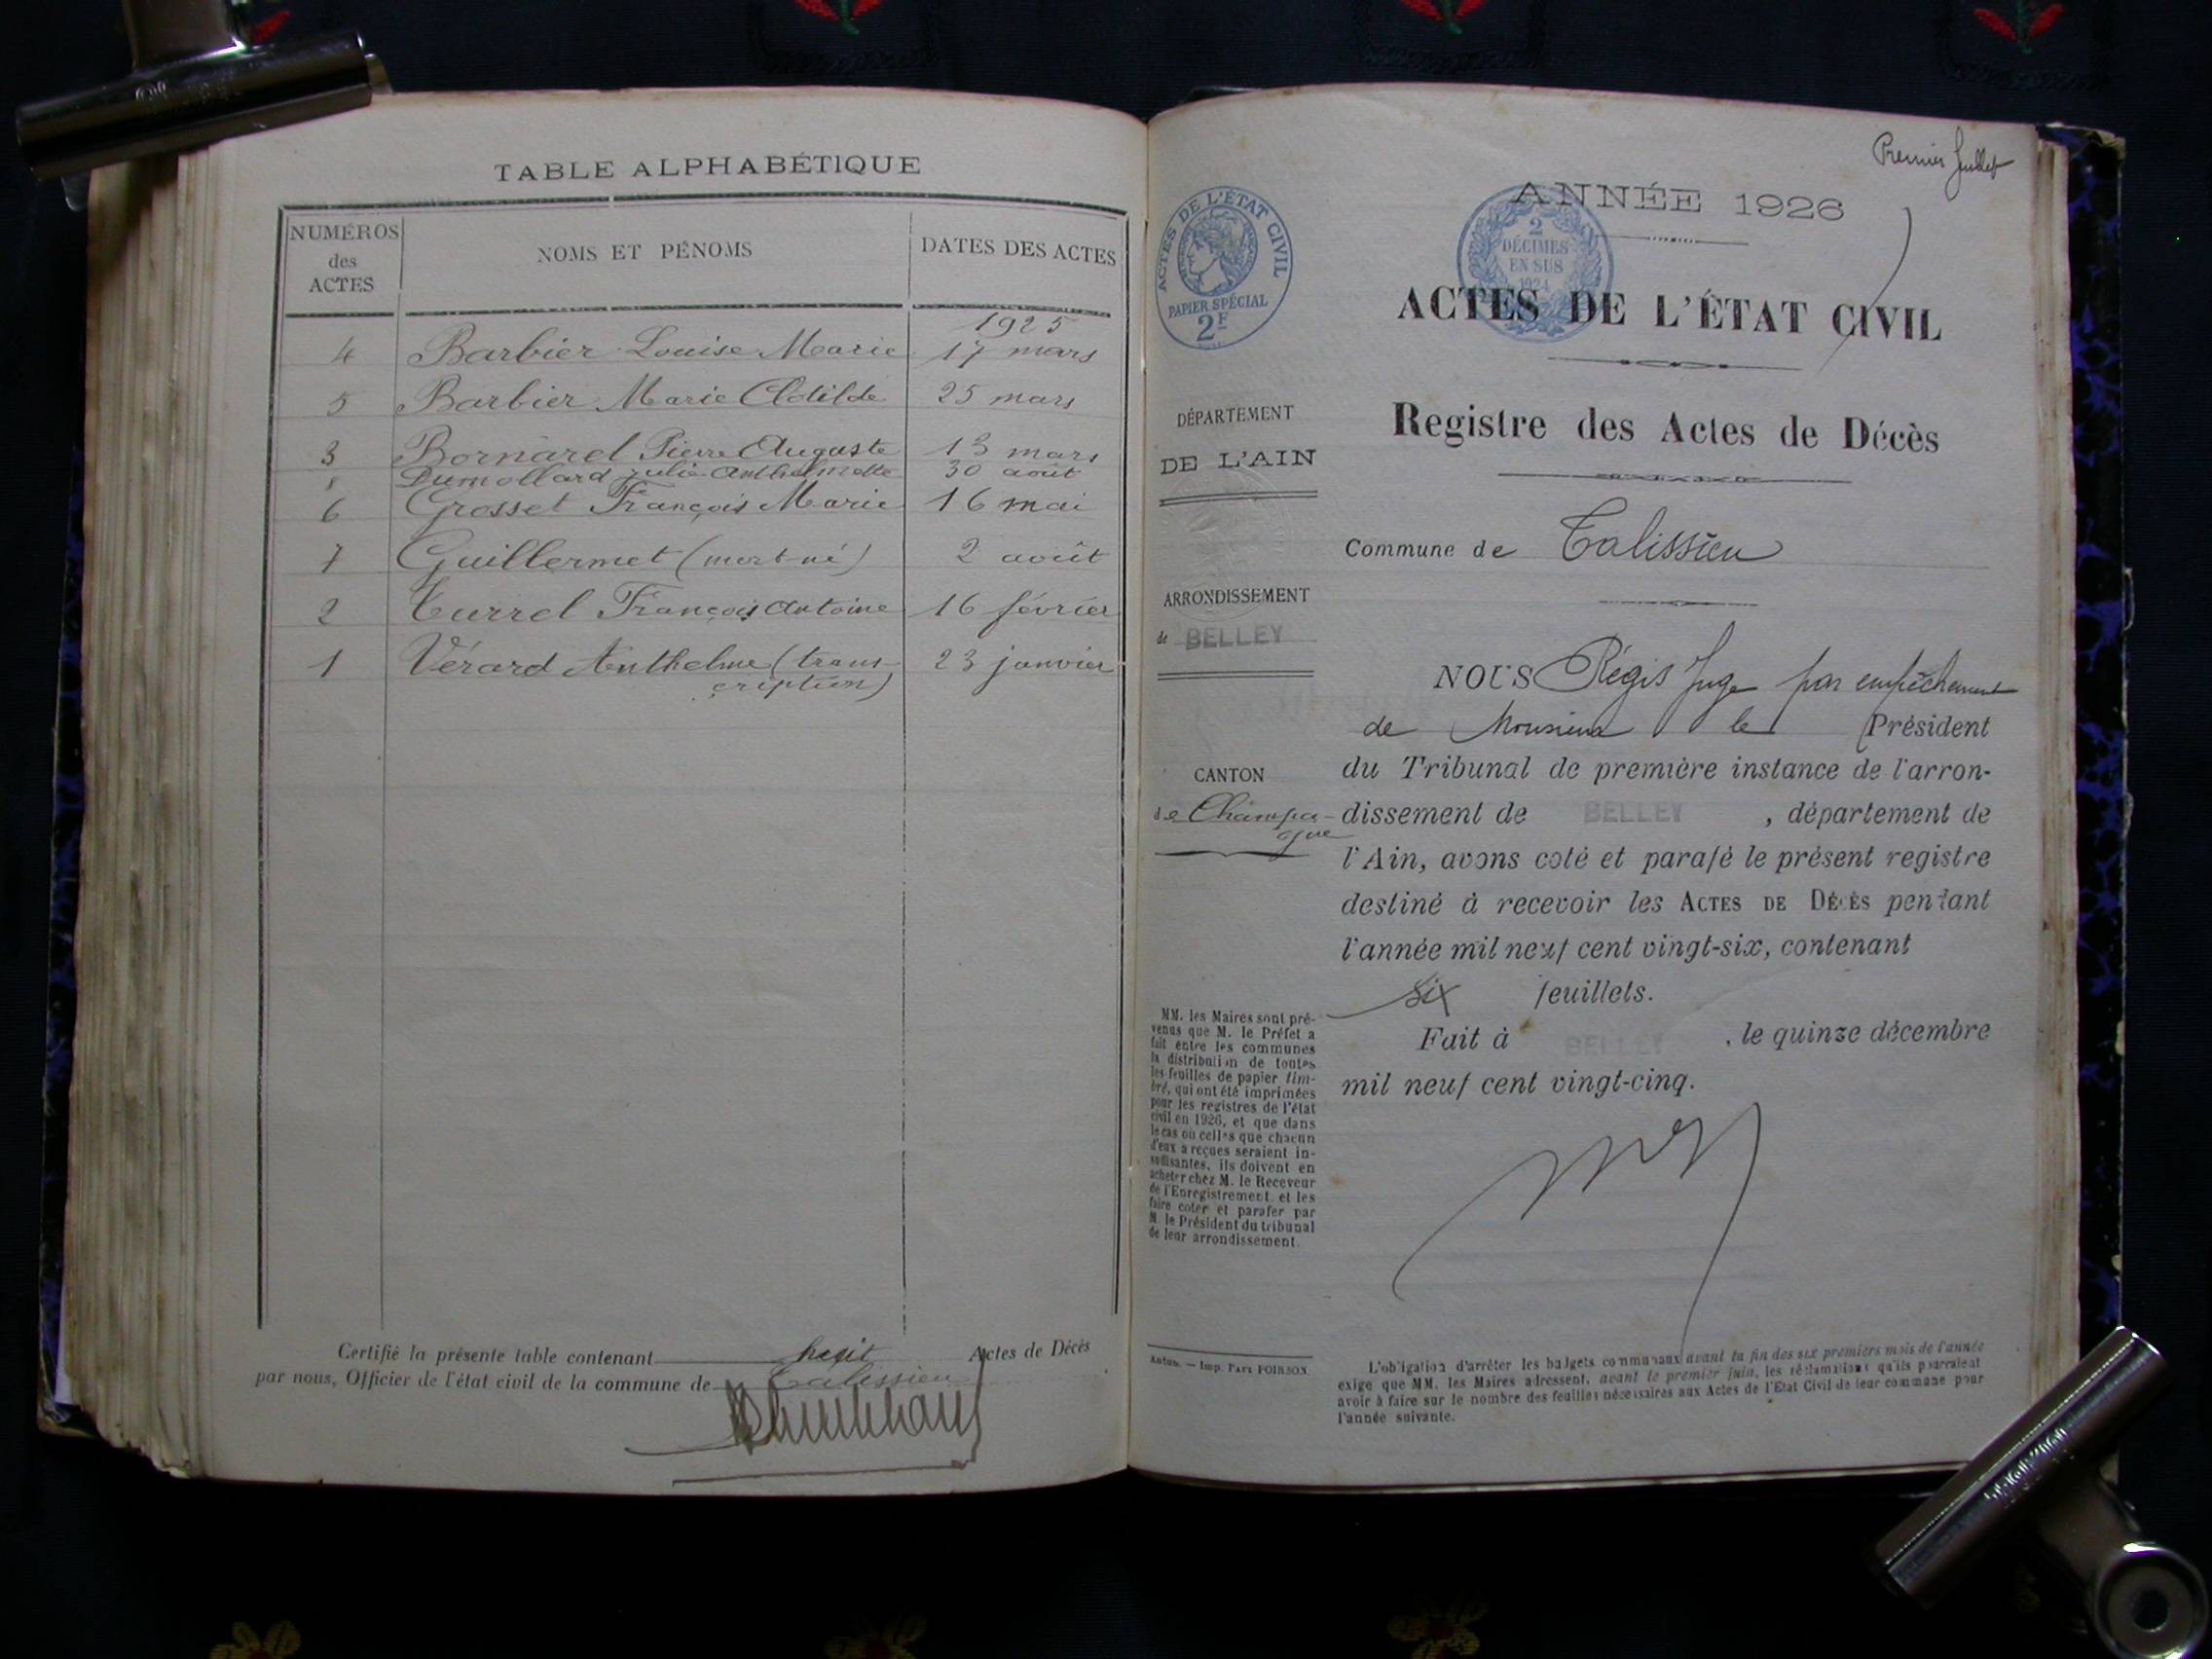 TABLE ALPHABÉTIQUE
NUMÉROS
des
ACTES
NOMS ET PÉNOMS
DATES DES ACTES
1925
4 Barbier Louise Marie 17 mars
5 Barbier Marie Clotilde 25 mars
3 Bornarel Pierre Auguste 13 mars
8 Dumollard Julie Anthelmette 30 août
6 Grosset François Marie 16 mai
7 Guillermet (mort-né) 2 août
2 Turrel François Antoine 16 février
1 Vérard Anthelme (trans- 23 janvier
cription)
Certifié la présente table contenant huit Actes de Décès
par nous, Officier de l'état civil de la commune de Talissieu
Premier feuillet
ANNÉE 1926
ACTES DE L'ÉTAT CIVIL
PAPIER SPÉCIAL
2F
2
DÉCIMES
EN SUS
1924
ACTES DE L'ÉTAT CIVIL
Registre des Actes de Décès
DÉPARTEMENT
DE L'AIN
Commune de Talissieu
ARRONDISSEMENT
de BELLEY
CANTON
de Champa-
gne
NOUS Régis Juge par empêchement
de Monsieur le Président
du Tribunal de première instance de l'arron-
dissement de BELLEY, département de
l'Ain, avons coté et parafé le présent registre
destiné à recevoir les ACTES DE DÉCÈS pendant
l'année mil neuf cent vingt-six, contenant
six feuillets.
Fait à BELLEY, le quinze décembre
mil neuf cent vingt-cinq.
MM. les Maires sont pré-
venus que M. le Préfet a
fait entre les communes
la distribution de toutes
les feuilles de papier tim-
bré, qui ont été imprimées
pour les registres de l'état
civil en 1926, et que dans
le cas où celles que chacun
d'eux a reçues seraient in-
suffisantes, ils doivent en
acheter chez M. le Receveur
de l'Enregistrement et les
faire coter et parafer par
M. le Président du tribunal
de leur arrondissement.
Autun. — Imp. Parc POIRSON
L'obligation d'arrêter les budgets communaux avant la fin des six premiers mois de l'année
exige que MM. les Maires adressent, avant le premier juin, les réclamations qu'ils pourraient
avoir à faire sur le nombre des feuilles nécessaires aux Actes de l'Etat Civil de leur commune pour
l'année suivante.